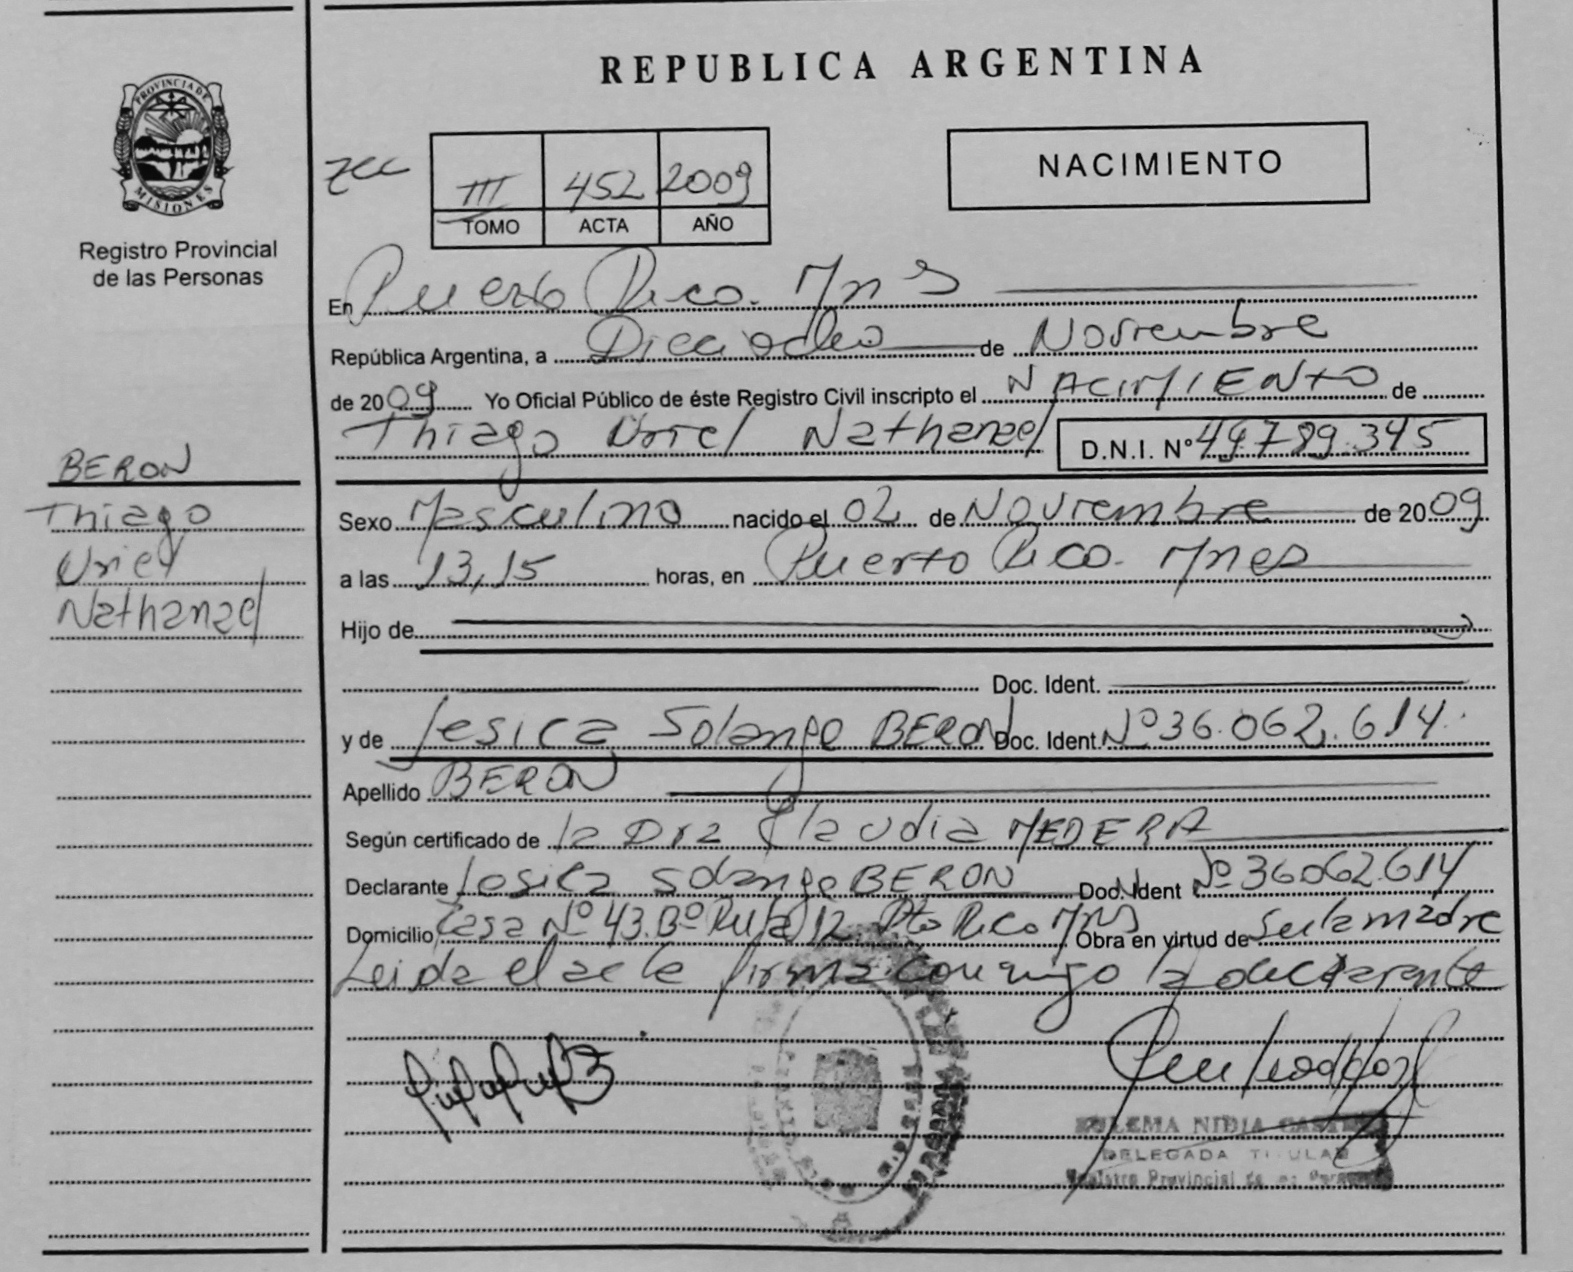 REPUBLICA ARGENTINA
PROVINCIA DE
MISIONES
Registro Provincial
de las Personas
NACIMIENTO
III 452 2009
TOMO ACTA AÑO
En Puerto Rico. Mns
República Argentina, a Dieciocho de Noviembre
de 2009 Yo Oficial Público de éste Registro Civil inscripto el NACIMIENTO de
Thiago Uriel Nathanael D.N.I. Nº 49.789.345
BERON
Thiago
Uriel
Nathanael
Sexo Masculino nacido el 02 de Noviembre de 2009
a las 13,15 horas, en Puerto Rico. Mnes
Hijo de
Doc. Ident.
y de Jesica Solange BERON Doc. Ident. Nº 36.062.614
Apellido BERON
Según certificado de la Dra Claudia MEDERA
Declarante Jesica Solange BERON Doc. Ident Nº 36062614
Domicilio Casa Nº 43. Bº Ruta 12. Pto Rico Mns Obra en virtud de Ser la madre
Leida el acta firma conmigo la declarante
ZULEMA NIDIA
DELEGADA TITULAR
Registro Provincial de